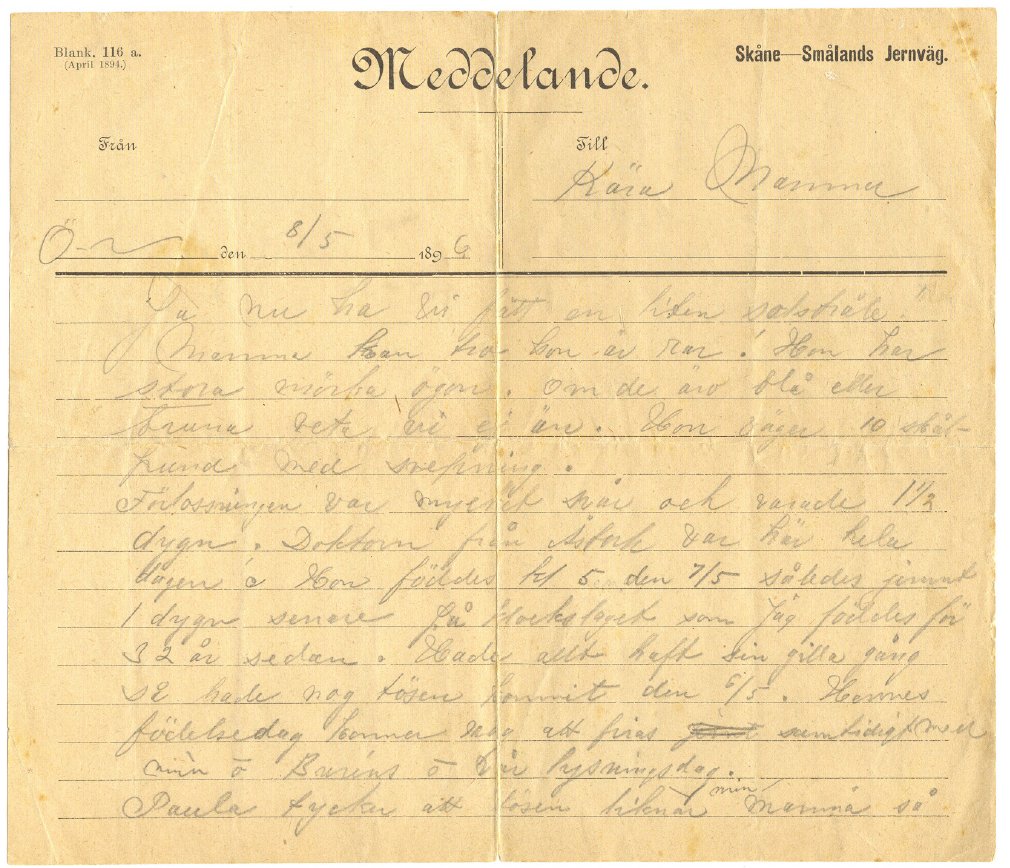 Blank. 116 a.
(April 1894.)
Meddelande.
Skåne—Smålands Jernväg.
Från
Till
Kära Mamma
Ö
den 8/5 1896
Ja nu ha vi fått en liten solstråle.
Mamma kan tro hon är rar! Hon har
stora mörka ögon. Om de äro blå eller
bruna veta vi ej än. Hon väger 10 skål-
pund med svepning.
Förlossningen var mycket svår och varade 1 1/2
dygn. Doktorn från Åstorp var här hela
dagen. Hon föddes kl 5 den 7/5 således jemnt
1 dygn senare på klockslaget som jag föddes för
32 år sedan. Hade allt haft sin gilla gång
så hade nog tösen kommit den 6/5. Hennes
födelsedag kommer nog att firas samtidigt med
min o Buréns o vår lysningsdag.
Paula tycker att tösen liknar min Mamma så